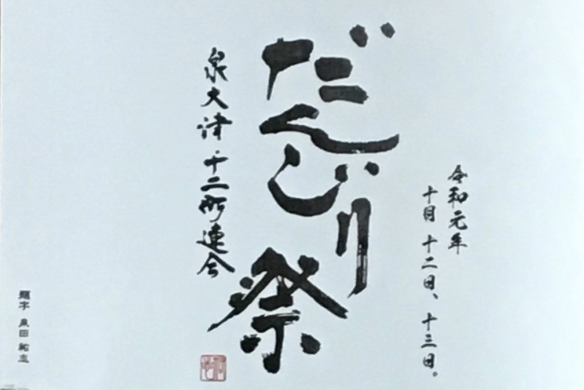 令和元年
十月十二日、十三日。
だんじり祭
泉大津十二町連合